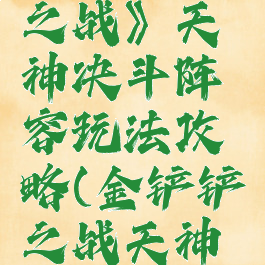 之战》天
神决斗阵
容玩法攻
略(金铲铲
之战天神